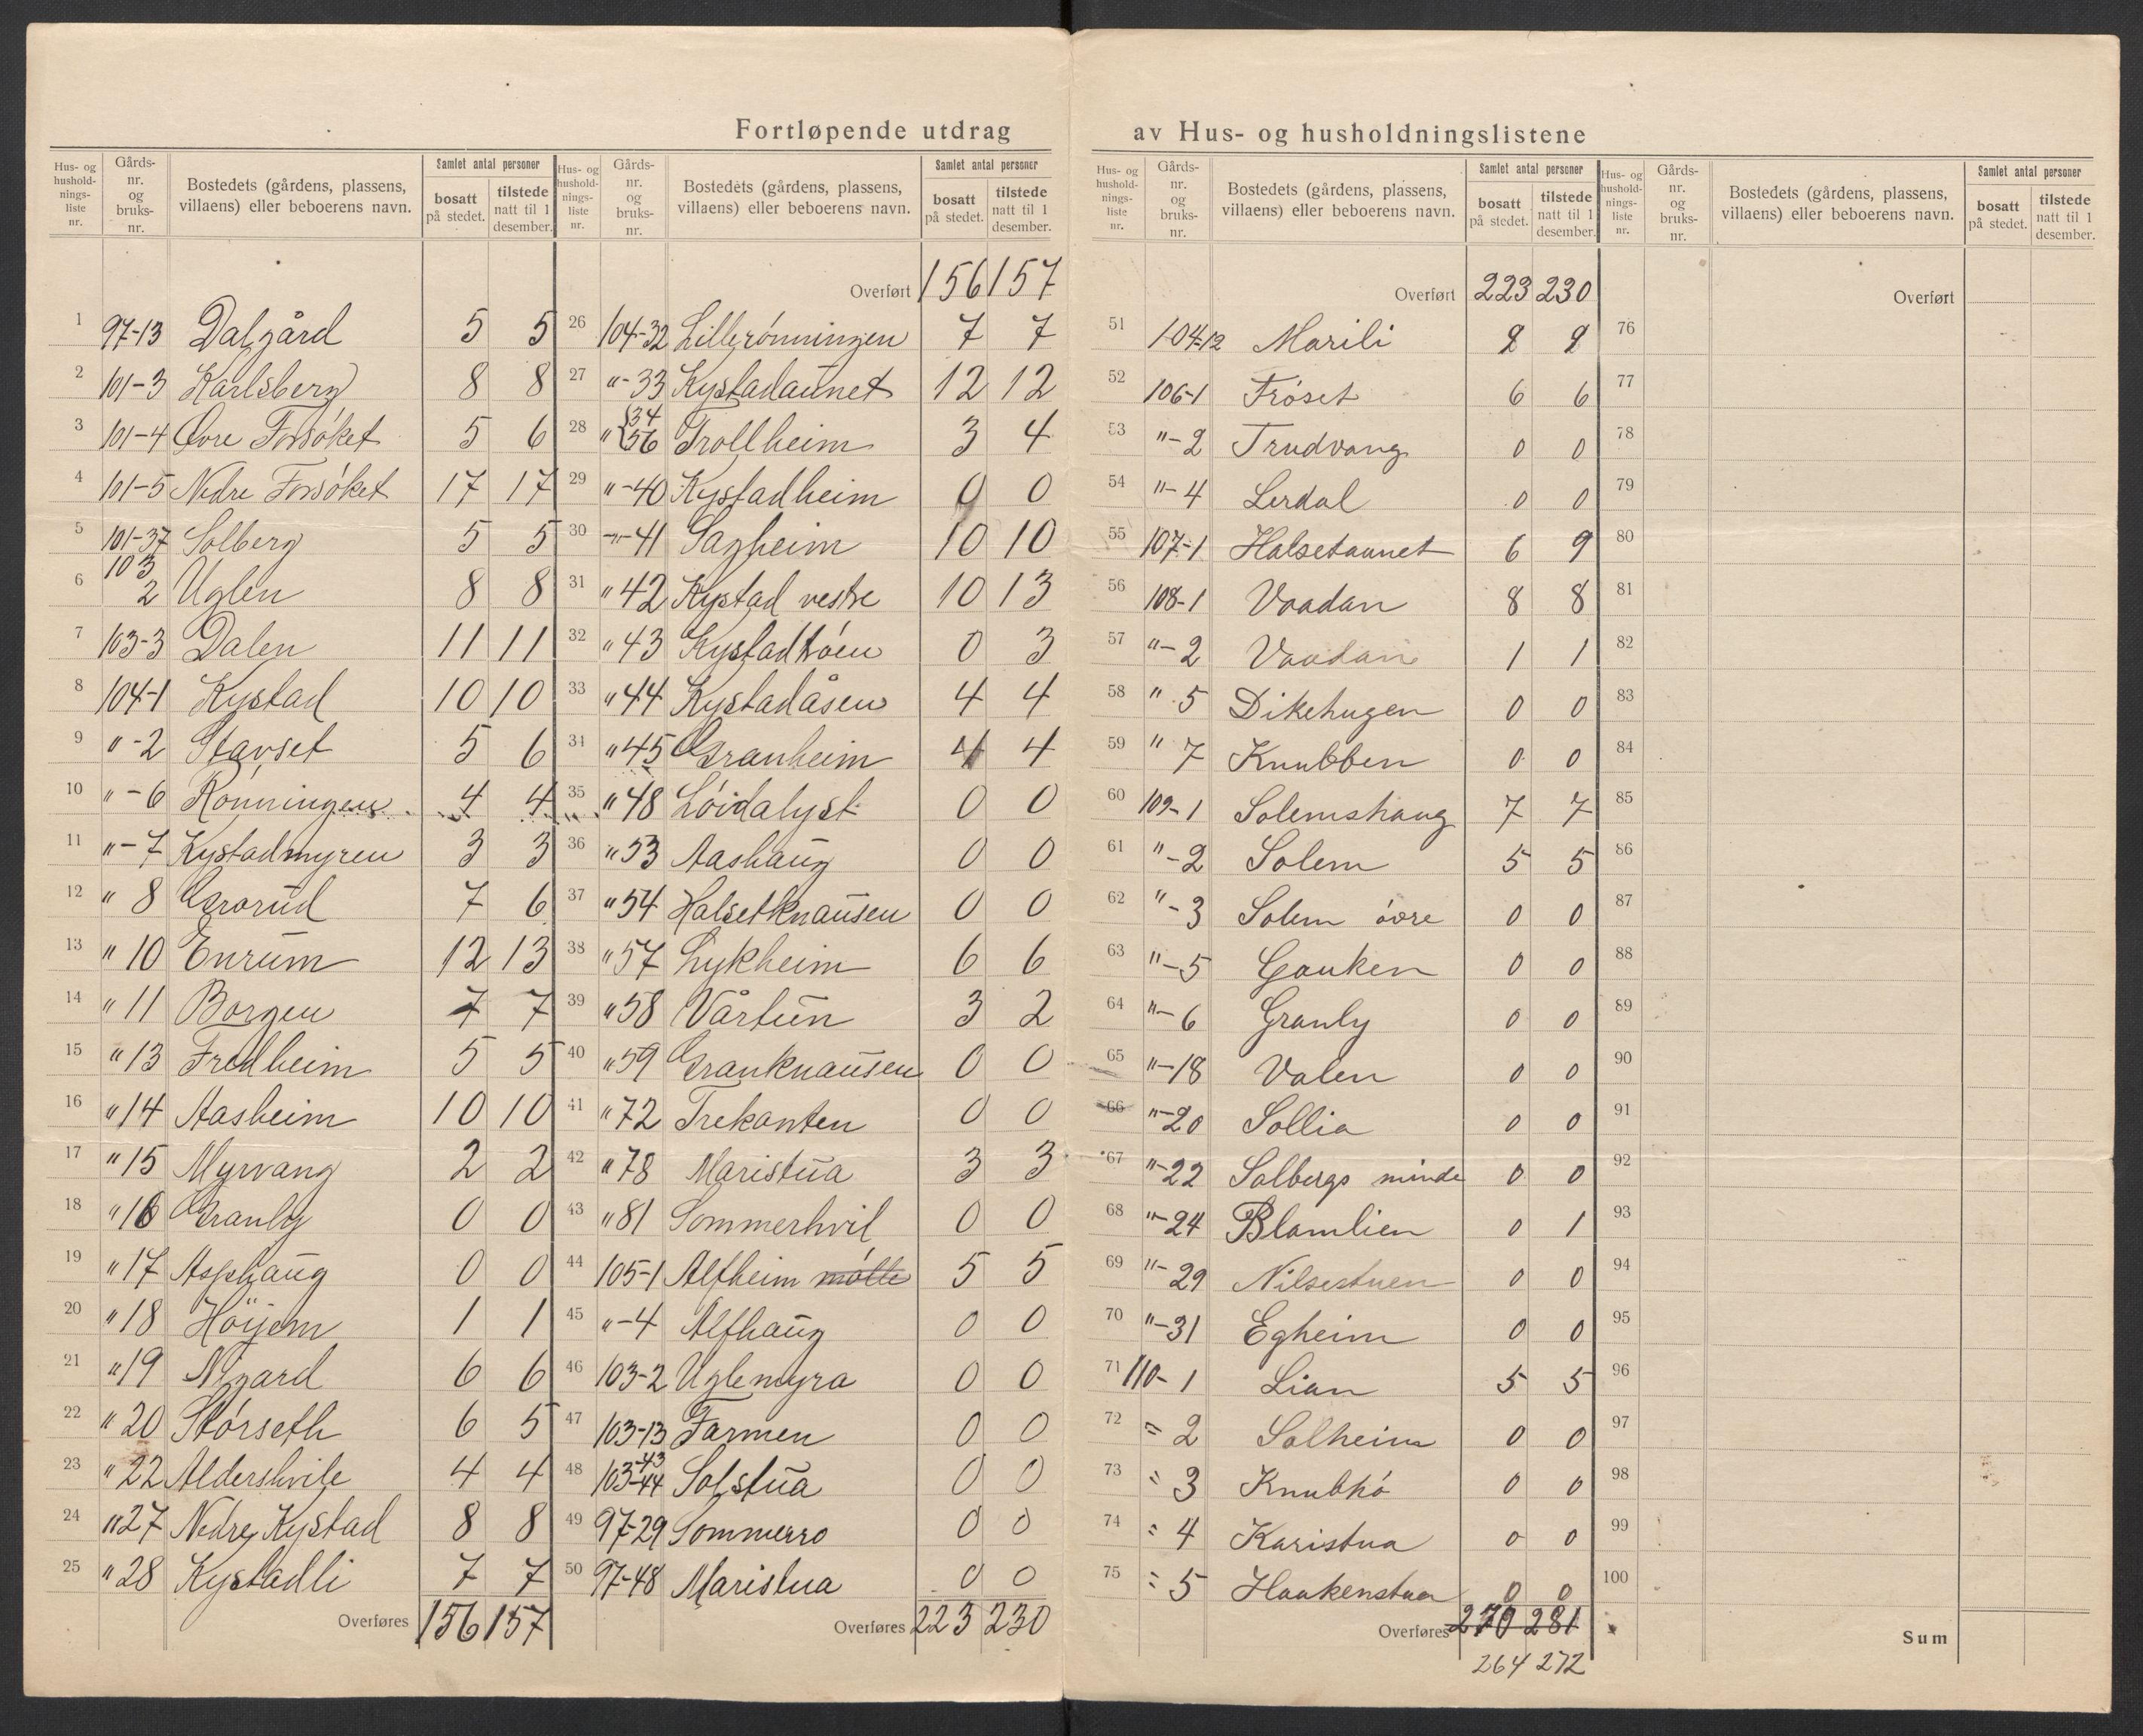 Fortløpende utdrag av Hus- og husholdningslistene
Hus- og husholdningsliste nr. | Gårdsnr. og bruksnr. | Bostedets (gårdens, plassens, villaens) eller beboerens navn. | Samlet antal personer | bosatt på stedet. | tilstede natt til 1 desember.
1 97-13 Dalgård 5 5
2 101-3 Karlsberg 8 8
3 101-4 Øvre Forsøket 5 6
4 101-5 Nedre Forsøket 17 17
5 101-37 Solberg 5 5
6 103 2 Uglen 8 8
7 103-3 Dalen 11 11
8 104-1 Kystad 10 10
9 "-2 Stavset 5 6
10 "-6 Rönningen 4 4
11 "-7 Kystadmyren 3 3
12 " 8 Grorud 7 6
13 " 10 Enrum 12 13
14 " 11 Borgen 7 7
15 " 13 Fredheim 5 5
16 " 14 Aasheim 10 10
17 " 15 Myrvang 2 2
18 " 16 Granly 0 0
19 " 17 Asphaug 0 0
20 " 18 Höijem 1 1
21 " 19 Nygard 6 6
22 " 20 Störseth 6 5
23 " 22 Aldershvile 4 4
24 " 27 Nedre Kystad 8 8
25 " 28 Kystadli 7 7
Overføres 156 157
Hus- og husholdningsliste nr. | Gårdsnr. og bruksnr. | Bostedets (gårdens, plassens, villaens) eller beboerens navn. | Samlet antal personer | bosatt på stedet. | tilstede natt til 1 desember.
Overført 156 157
26 104-32 Lillerønningen 7 7
27 "-33 Kystadaunet 12 12
28 " {34 56 Trollheim 3 4
29 "-40 Kystadheim 0 0
30 -"-41 Sagheim 10 10
31 " 42 Kystad vestre 10 13
32 " 43 Kystadtrøen 0 3
33 " 44 Kystadåsen 4 4
34 " 45 Granheim 4 4
35 " 48 Löidalyst 0 0
36 " 53 Aashaug 0 0
37 " 54 Halsetknausen 0 0
38 " 57 Lykheim 6 6
39 " 58 Vårtun 3 2
40 " 59 Granknausen 0 0
41 " 72 Trekanten 0 0
42 " 78 Maristua 3 3
43 " 81 Sommerhvil 0 0
44 105-1 Alfheim mölle 5 5
45 "-4 Alfhaug 0 0
46 103-2 Uglemyra 0 0
47 103-13 Farmen 0 0
48 103-43 -44 Solstua 0 0
49 97-29 Sommerro 0 0
50 97-48 Maristua 0 0
Overføres 223 230
Hus- og husholdningsliste nr. | Gårdsnr. og bruksnr. | Bostedets (gårdens, plassens, villaens) eller beboerens navn. | Samlet antal personer | bosatt på stedet. | tilstede natt til 1 desember.
Overført 223 230
51 104-12 Marili
52 106-1 Frøset 6 6
53 "-2 Trudvang 0 0
54 "-4 Lerdal 0 0
55 107-1 Halsetaunet 6 9
56 108-1 Vaadan 8 8
57 "-2 Vaadan 1 1
58 " 5 Dikehugen 0 0
59 " 7 Knubben 0 0
60 109-1 Solemshaug 7 7
61 "-2 Solem 5 5
62 "-3 Solem övre 0 0
63 "-5 Gauken 0 0
64 "-6 Granly 0 0
65 "-18 Valen 0 0
66 "-20 Sollia 0 0
67 "-22 Solbergs minde 0 0
68 "-24 Blamlien 0 1
69 "-29 Nilsestuen 0 0
70 "-31 Egheim 0 0
71 110-1 Lian 5 5
72 = 2 Solheim 0 0
73 = 3 Knubhö 0 0
74 = 4 Karistua 0 0
75 = 5 Haakenstua 0 0
Overføres 270 281
264 272
Hus- og husholdningsliste nr. | Gårdsnr. og bruksnr. | Bostedets (gårdens, plassens, villaens) eller beboerens navn. | Samlet antal personer | bosatt på stedet. | tilstede natt til 1 desember.
Overført
76
77
78
79
80
81
82
83
84
85
86
87
88
89
90
91
92
93
94
95
96
97
98
99
100
Sum